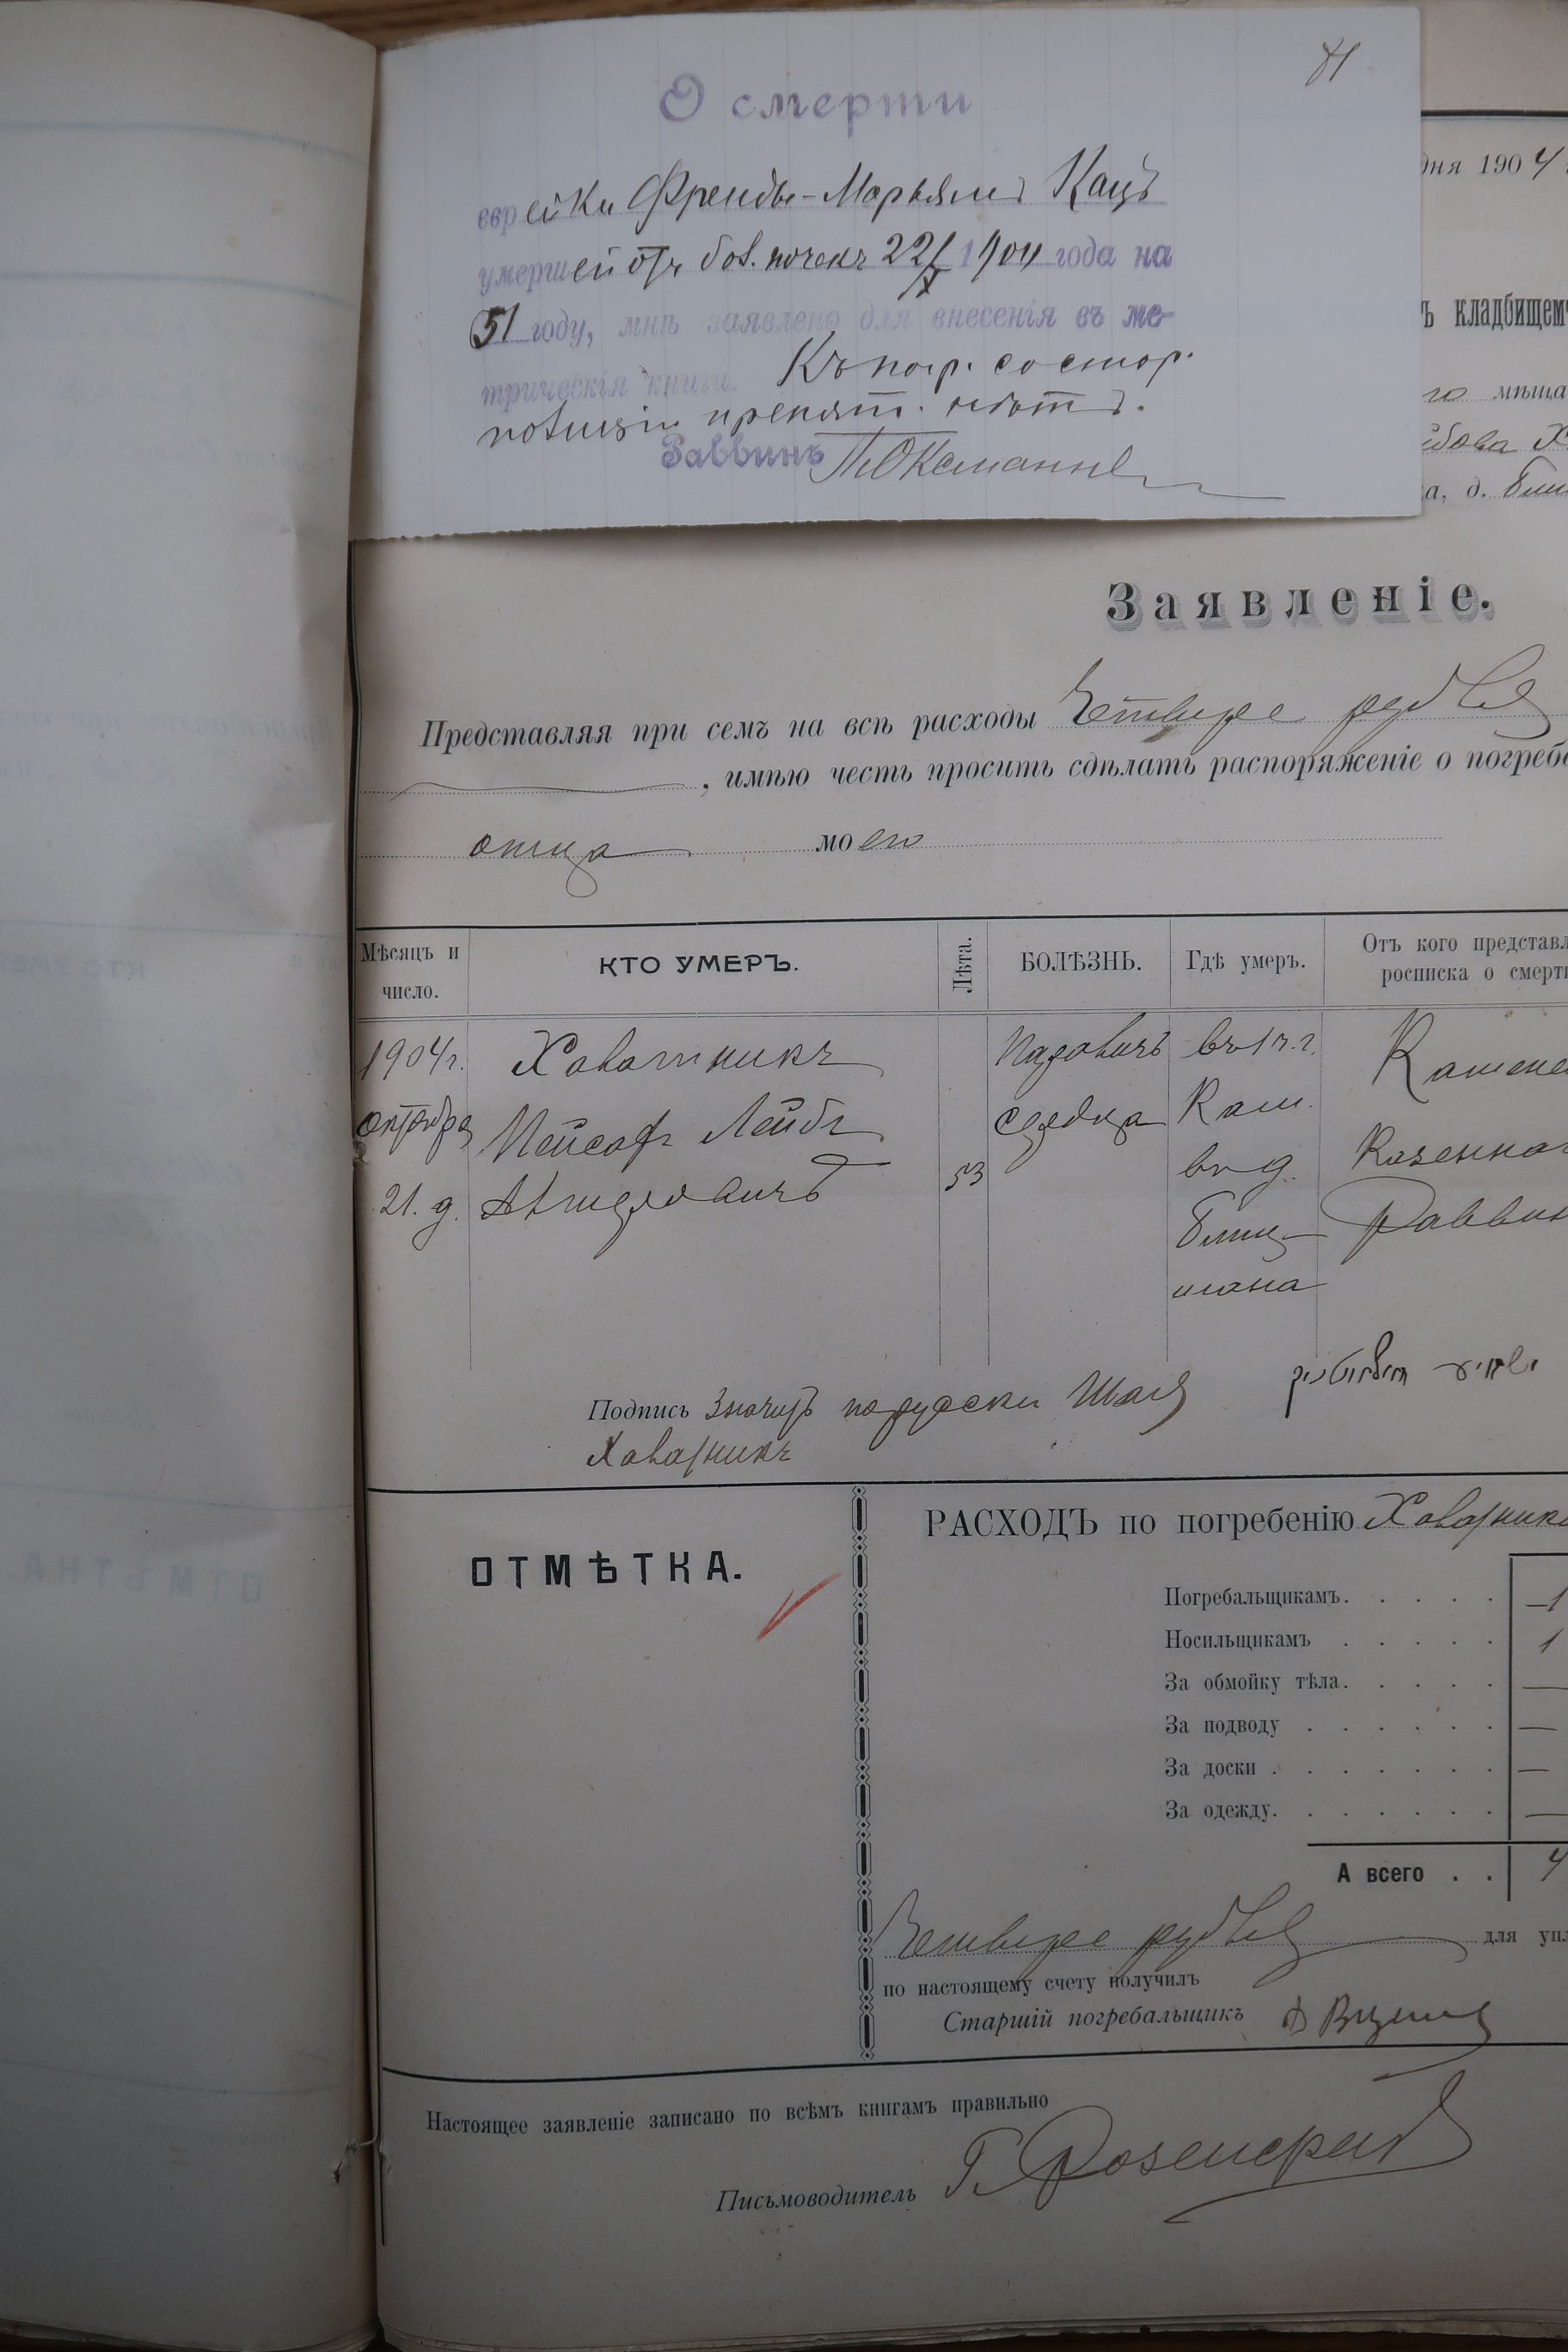 81
О смерти
еврейки Френды-Марьямъ Кацъ
умершей отъ бол. почекъ 22/X 1904 года на
51 году, мнѣ заявлено для внесенія въ ме-
трическія книги. Къ погр. со стор.
полиціи препят. нѣтъ.
Раввинъ
дня 1904
ъ кладбищем
го мѣща
а, д.
Заявленіе.
Представляя при семъ на всѣ расходы Четыре рубля
, имѣю честь просить сдѣлать распоряженіе о погреб
отца моего
Мѣсяцъ и число.
КТО УМЕРЪ.
Лѣта.
БОЛѢЗНЬ.
Гдѣ умеръ.
Отъ кого представл
росписка о смерт
1904 г.
октября
21. д.
Хаватникъ
Пейсахъ Лейбъ
53
сердца
въ 1 ч. г.
Каш.
въ д.
Блиц-
мана
Казенна
Раввин
Подпись значитъ по русски Шая
Хаватникъ
ОТМѢТКА.
РАСХОДЪ по погребенію Хаватник
Погребальщикамъ. 1
Носильщикамъ 1
За обмойку тѣла. —
За подводу —
За доски —
За одежду. —
А всего . . 4
Четыре рубля для упл
по настоящему счету получилъ
Старшій погребальщикъ
Настоящее заявленіе записано по всѣмъ книгамъ правильно
Письмоводитель